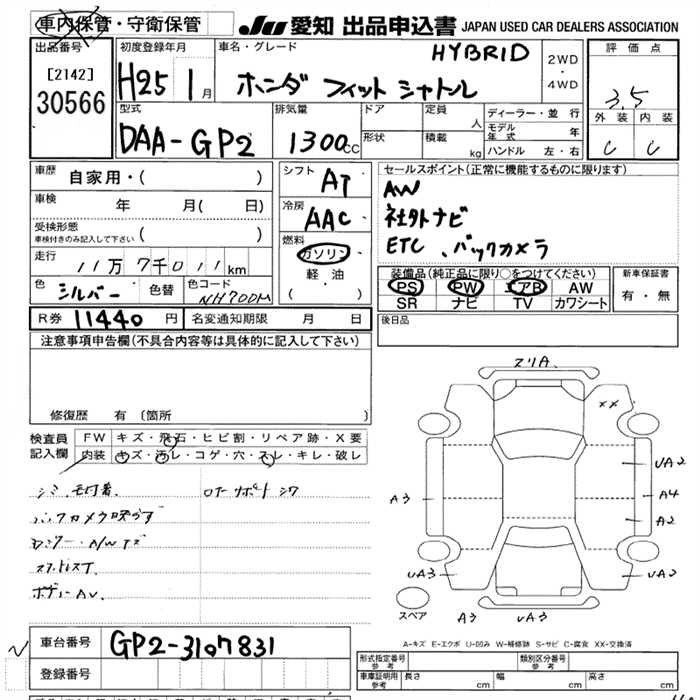 車内保管・守衛保管
JU 愛知 出品申込書 JAPAN USED CAR DEALERS ASSOCIATION
出品番号
[2142]
30566
初度登録年月
H25 1月
車名・グレード
HYBRID
ホンダ フィット シャトル
2WD
・
4WD
評価点
3.5
外装 内装
C C
型式
DAA-GP2
排気量
1300cc
ドア
形状
定員 人
積載 kg
ディーラー・並行
モデル年式 年
ハンドル 左・右
車歴 自家用・( )
車検 年 月( 日)
受検形態
車検付きのみ記入して下さい ( )
走行 11万7千011km
色 シルバー 色替 色コード NH700M
シフト AT
冷房 AAC
燃料
ガソリン
軽油
( )
セールスポイント(正常に機能するものに限ります)
AW
社外ナビ
ETC、バックカメラ
装備品(純正品に限り○をつけてください)
PS PW エアB AW
SR ナビ TV カワシート
新車保証書
有・無
R券 11440円 名変通知期限 月 日
後日品
注意事項申告欄(不具合内容等は具体的に記入して下さい)
修復歴 有(箇所 )
検査員記入欄
FW キズ・飛石・ヒビ割・リペア跡・X要
内装 キズ・汚レ・コゲ・穴・スレ・キレ・破レ
シミ
バックカメラ映らず
スリA
XX
UA2
A4
A2
A3
UA3
UA2
スペア
A3
UA3
A-キズ E-エクボ U-凹み W-補修跡 S-サビ C-腐食 XX-交換済
車台番号 GP2-3107831
登録番号
形式指定番号 参考
類別区分番号 参考
車庫証明用 参考
長さ cm 幅 cm 高さ cm